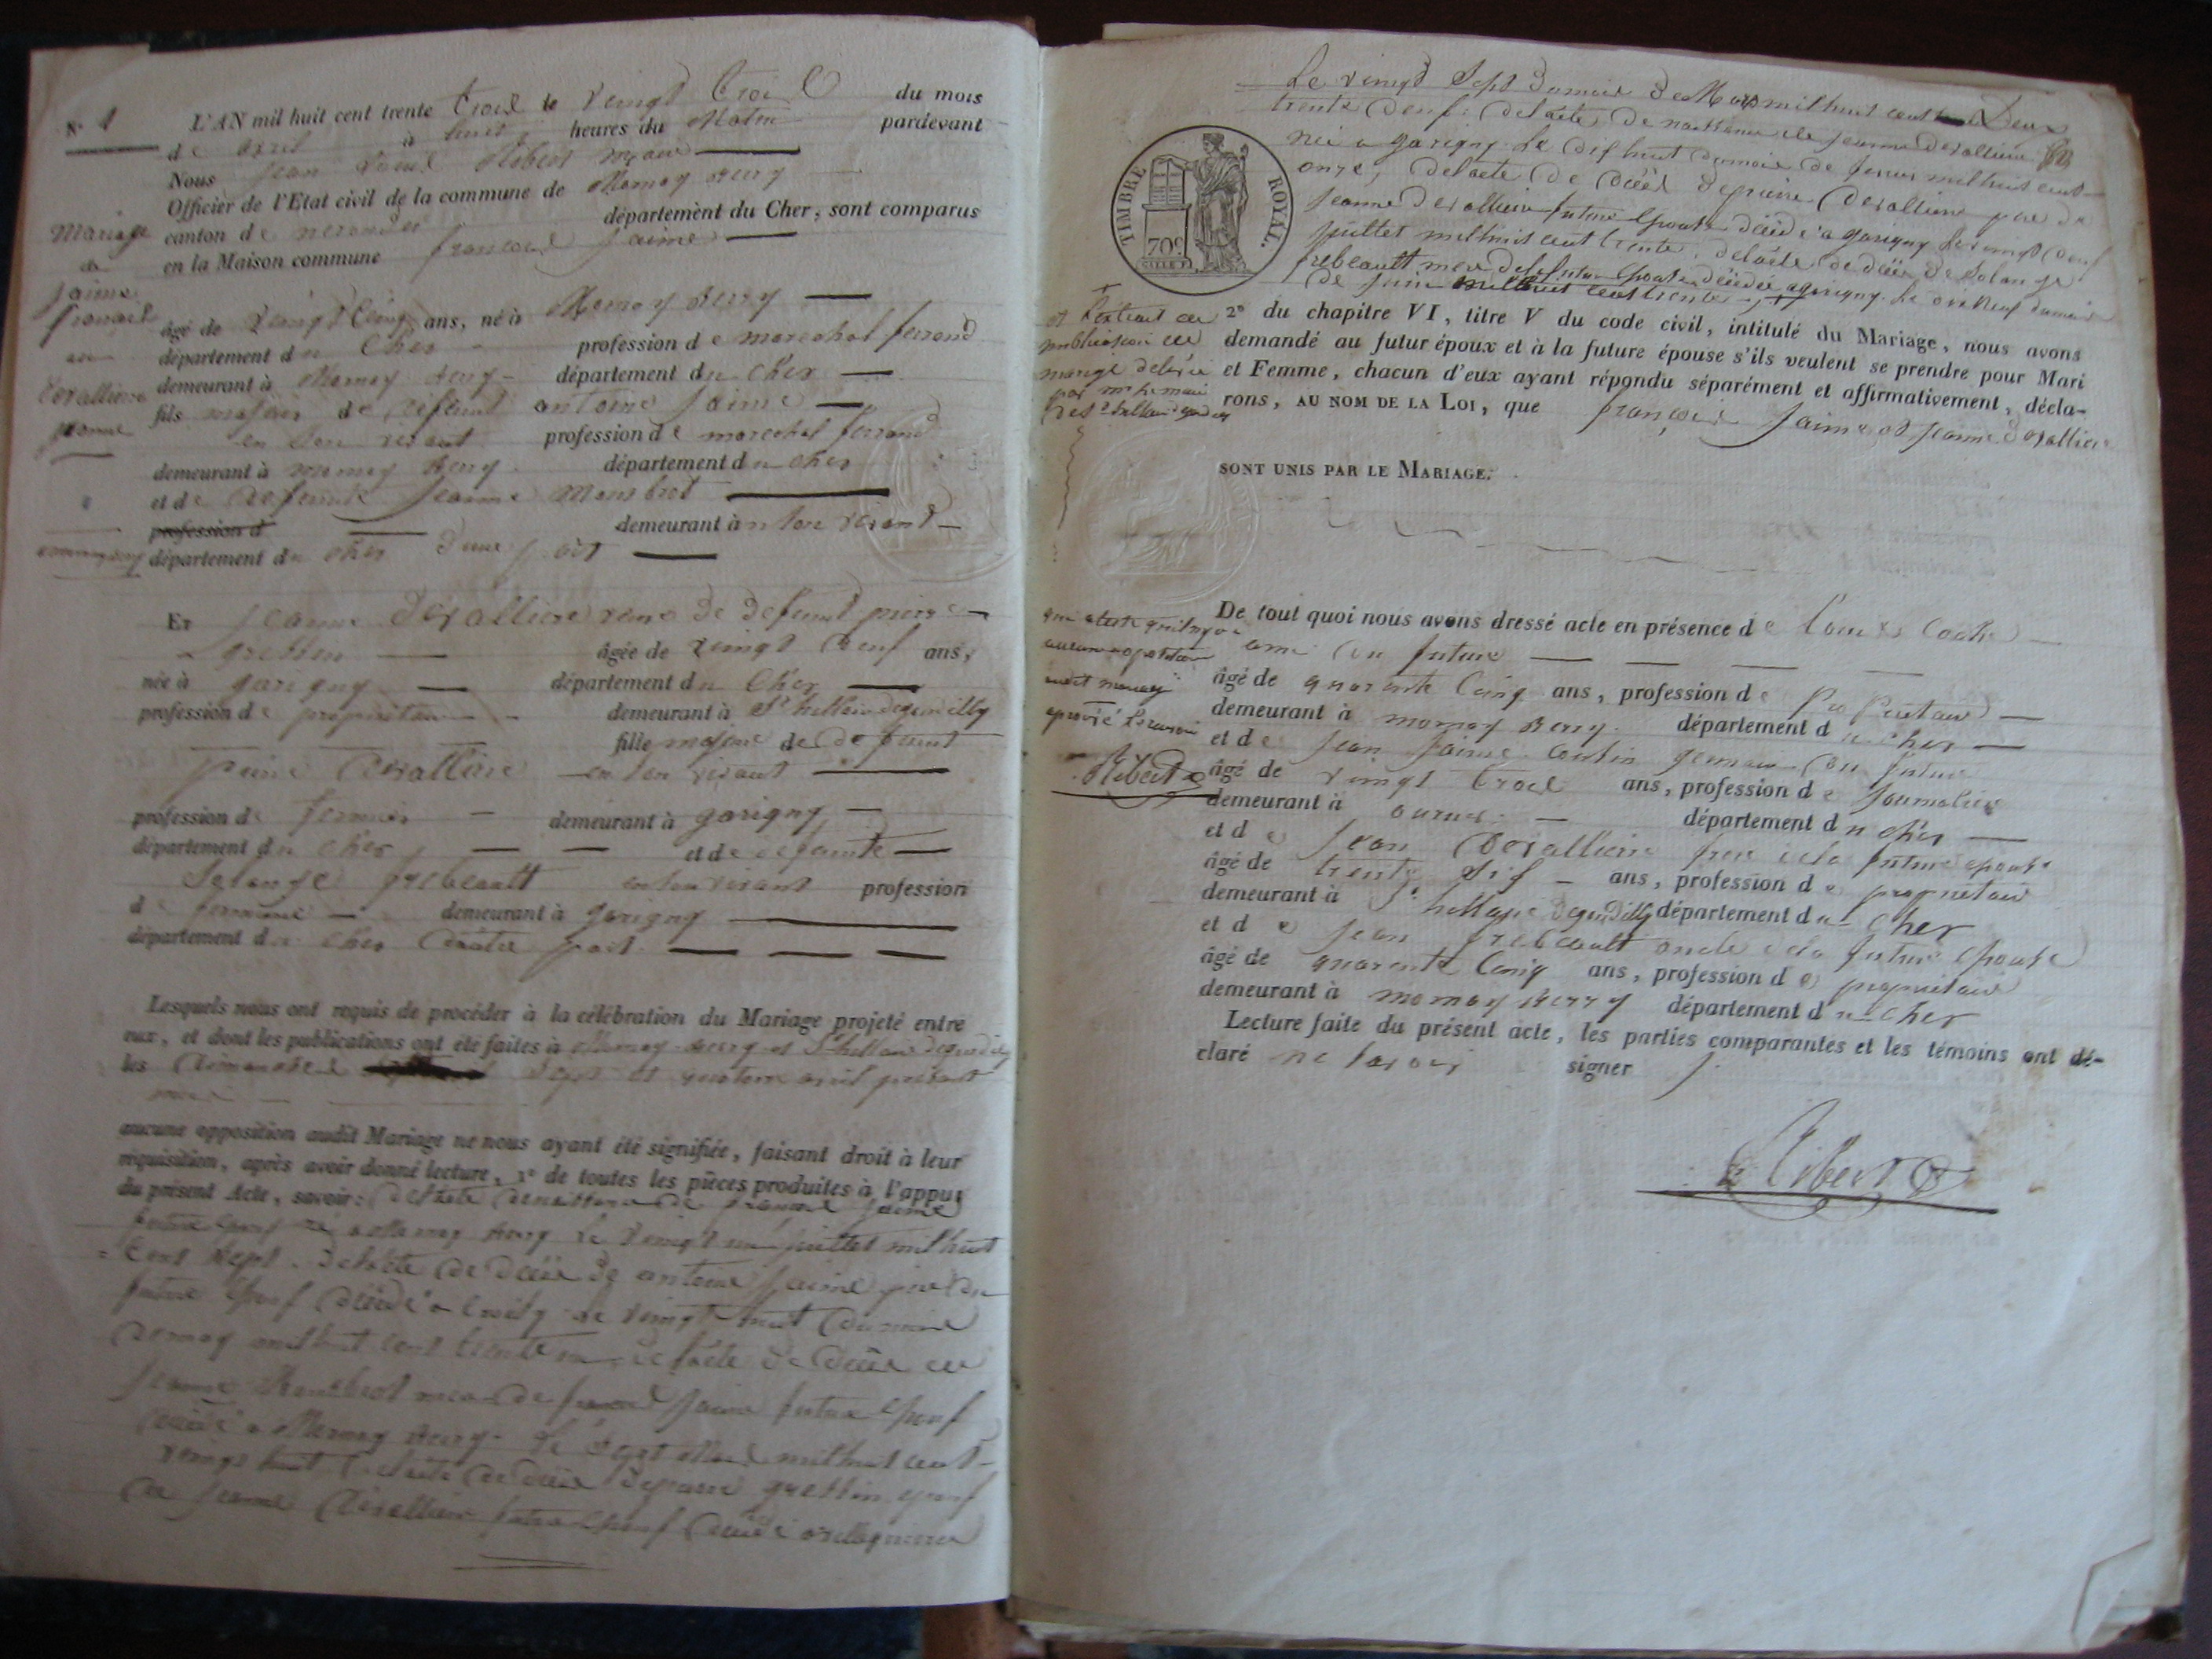 N° 1
L'AN mil huit cent trente trois le vingt trois du mois
de avril à huit heures du Matin pardevant
Nous Jean Robert maire
Officier de l'Etat civil de la commune de Mornay Berry
canton de nerondes département du Cher, sont comparus
en la Maison commune francois Jaime
âgé de vingt cinq ans, né à Mornay Berry
département du Cher profession de marechal ferrand
demeurant à Mornay Berry département du Cher
fils majeur de defunt antoine Jaime
en son vivant profession de marechal ferrand
demeurant à mornay Berry département du cher
et de defunte Jeanne
profession d demeurant à en son vivant
département du cher d'une part
Mariage
de
Jaime
francois
et
Devalliere
Jeanne
Et Jeanne Devalliere veuve de defunt pierre
gressin âgée de vingt deux ans,
née à garigny département du Cher
profession de propriétaire demeurant à St hillaire de gondilly
fille majeure de defunt
pierre Devalliere en son vivant
profession de fermier demeurant à garigny
département du cher et de defunte
Solange frebeault en son vivant profession
de fermiere demeurant à garigny
département du cher d'autre part.
Lesquels nous ont requis de procéder à la célébration du Mariage projeté entre
eux, et dont les publications ont été faites à Mornay Berry et St hillaire de gondilly
les dimanches sept et quatorze avril présent
mois
aucune opposition audit Mariage ne nous ayant été signifiée, faisant droit à leur
réquisition, après avoir donné lecture, 1° de toutes les pièces produites à l'appui
du présent Acte, savoir: de l'acte de naissance de francois Jaime
futur epoux né a Mornay Berry le vingt un juillet mil huit
cent sept. de l'acte de décès de antoine Jaime père du
futur epoux décédé a le vingt huit du mois
de may mil huit cent trente un de l'acte de décès de
Jeanne mere de francois Jaime futur epoux
décédé a Mornay Berry le sept mil huit cent
vingt huit de l'acte de décès de pierre gressin epoux
de Jeanne Devalliere future epouse décédé
Le vingt sept du mois de Mars mil huit cent Deux
trente deux: de l'acte de naissance de Jeanne Devalliere
née a garigny le dix huit du mois de mil huit cent
onze, de l'acte de décès de pierre Devalliere père de
Jeanne Devalliere future epouse décédé a garigny le vingt deux
juillet mil huit cent trente, de l'acte de décès de Solange
frebeault mere de la future epouse décédée a garigny le dix neuf du mois
de juin mil huit cent trente
TIMBRE ROYAL.
70c
et l'extrait de
publication de
mariage délivré
par mr le maire
de St hillaire gondilly
2° du chapitre VI, titre V du code civil, intitulé du Mariage, nous avons
demandé au futur époux et à la future épouse s'ils veulent se prendre pour Mari
et Femme, chacun d'eux ayant répondu séparément et affirmativement, décla-
rons, AU NOM DE LA LOI, que françois Jaime et Jeanne Devalliere
SONT UNIS PAR LE MARIAGE.
qui atteste qu'il n'y a
aucune opposition
audit mariage
approuvé le renvoi
Robert
De tout quoi nous avons dressé acte en présence de Louis
ami du future
âgé de quarente cinq ans, profession de Propriétaire
demeurant à mornay Berry département du cher
et de Jean Jaime cousin germain du futur
âgé de vingt trois ans, profession de Journalier
demeurant à département du cher
et de Jean Devalliere frere de la future epouse
âgé de trente six ans, profession de propriétaire
demeurant à St hillaire de gondilly département du cher
et de Jean frebeault oncle de la future epouse
âgé de quarente cinq ans, profession de propriétaire
demeurant à mornay Berry département du cher
Lecture faite du présent acte, les parties comparantes et les témoins ont dé-
claré ne savoir signer
Robert